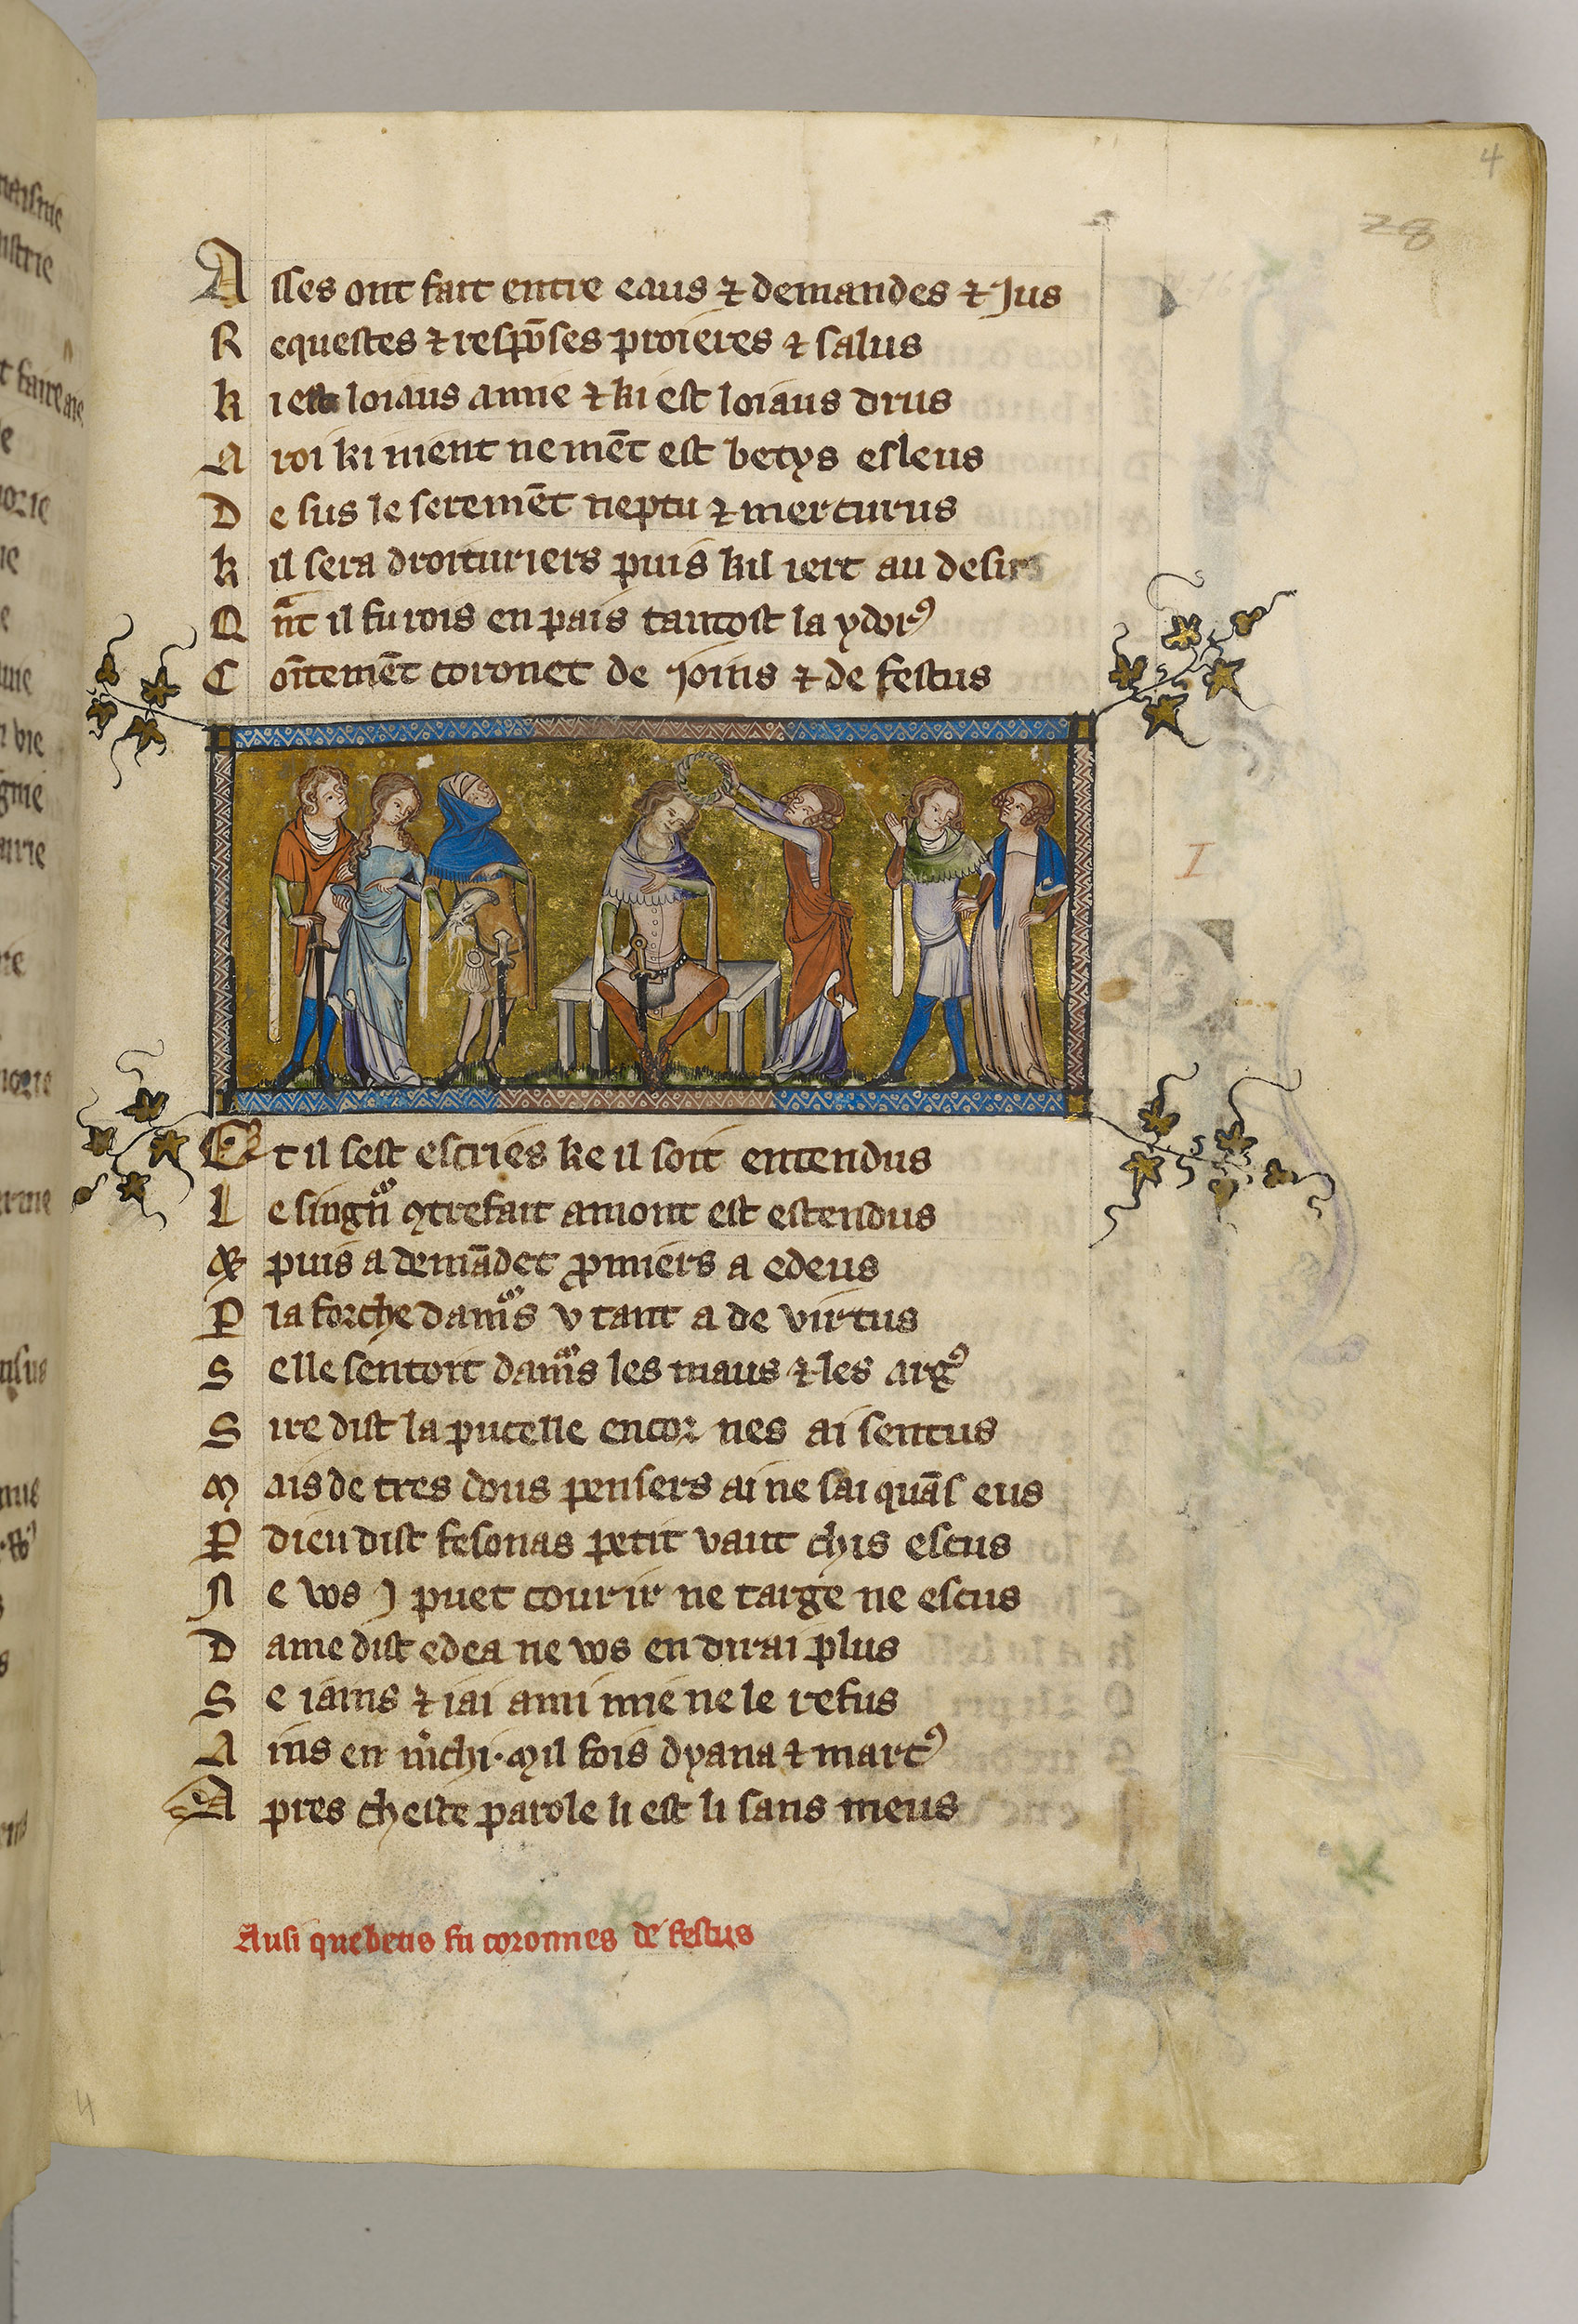 4
28
A sses ont fait entre eaus ⁊ demandes ⁊ jus
R equestes ⁊ respo̅ses proieres ⁊ salus
k i est loiaus amie ⁊ ki est loiaus drus
A roi ki nient ne me̅t est betys esleus
D e sus le sereme̅t neptu ⁊ mercurus
k il sera droituriers puis kil iert au desus
Q nt il fu rois en pais tantost la ydorꝰ
C ointeme̅t coronet de joins ⁊ de festus
E t il sest escries ke il soit entendus
L e singn ꝯtrefait amont est estendus
⁊ puis a dema̅det p̱miers a edeus
P la forche dam̅s v tant a de virtus
S elle sentoit dam̅s les maus ⁊ les argꝰ
S ire dist la pucelle encor nes ai sentus
M ais de tres dous pensers ai ne sai qua̅s eus
P dieu dist fesonas petit vaut chis escus
N e ws j puet courir ne targe ne escus
D ame dist edea ne ws en dirai plus
S e iains ⁊ iai ami mie ne le refus
A ins en m̅chi · mil fois dyana ⁊ marcꝰ
A pres cheste parole li est li sans meus
Ausi que betis fu coronnes de festus
I
4